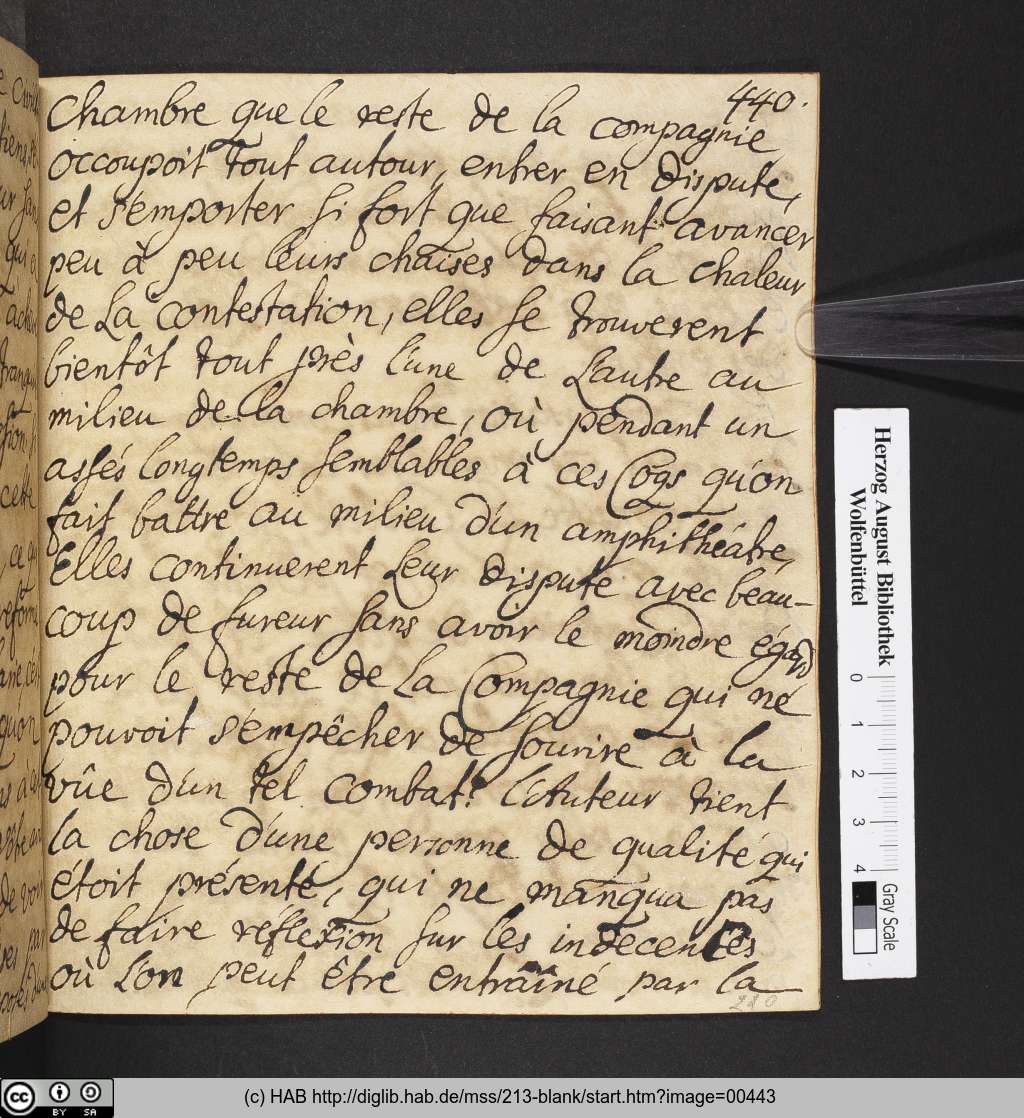 440.
Chambre que le reste de la compagnie
occoupoit tout autour, entrer en dispute,
et s'emporter si fort que faisant avancer
peu à peu leurs chaises dans la chaleur
de La contestation, elles se trouverent
bientôt tout près l'une de L'autre au
milieu de la chambre, où pendant un
assés longtemps semblables à ces Coqs qu'on
fait battre au milieu d'un amphithéatre,
Elles continuerent Leur dispute avec beau-
coup de fureur sans avoir le moindre égard
pour le reste de La Compagnie qui ne
pouvoit s'empêcher de sourire à la
vûe d'un tel combat. L'Auteur tient
la chose d'une personne de qualité qui
étoit présente, qui ne manqua pas
de faire reflexion sur les indecences
où L'on peut être entraîné par la
220
Herzog August Bibliothek
Wolfenbüttel
0 1 2 3 4
Gray Scale
cc BY SA
(c) HAB http://diglib.hab.de/mss/213-blank/start.htm?image=00443